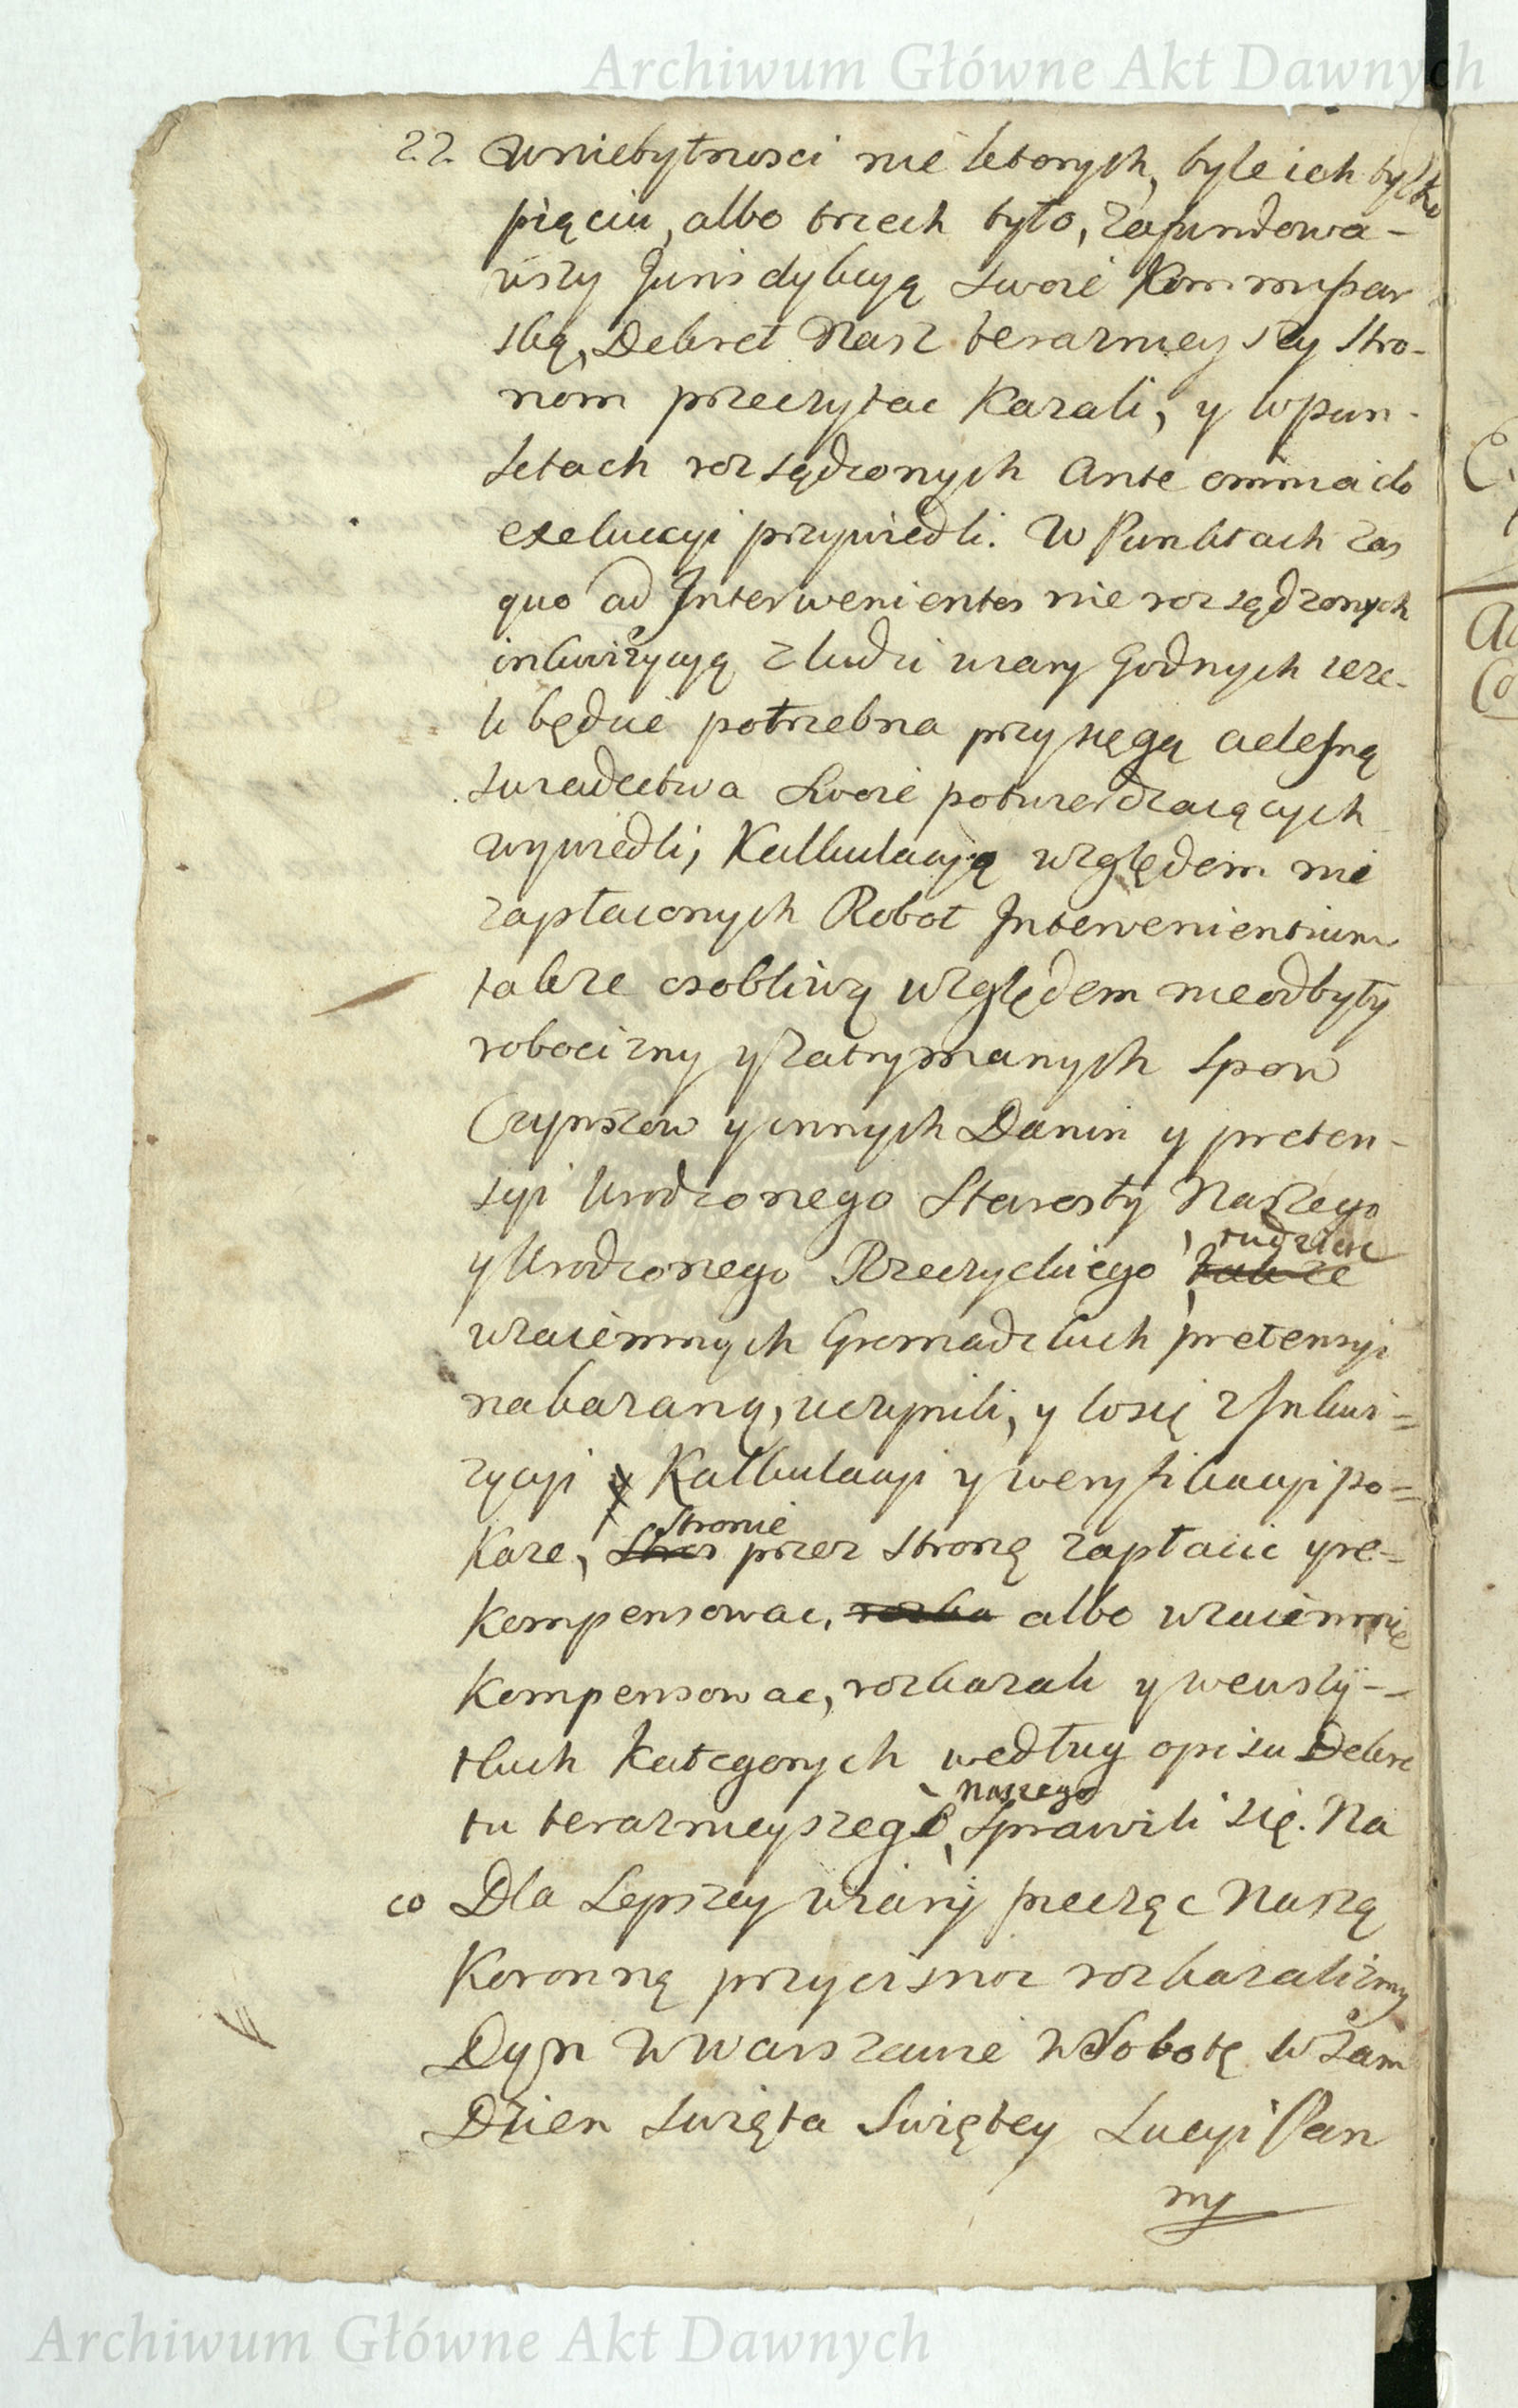 Archiwum Główne Akt Dawnych
22. w niebytnosci nie ktorych, byle ich tylko
pięciu, albo trzech było, zafundowa-
wszy Jurisdykcyą swoie Kommissar
ską, Dekret Nasz teraznieyszy Stro-
nom przeczytac Kazali, y w pun-
ktach rozsądzonych Ante omnia do
exekucyi przywiedli. W Punktach zas
quo ad Interwenientes nie rozsądzonych
inkwizycyą z ludzi wiary Godnych ieze-
li będzie potrzebna przysięgą cielesną
swiadectwa Swoie potwierdzaiących
wywiedli, Kalkulacyą względem nie
zapłaconych Robot Intervenientium
takze osobliwą względem nieodbyty
robocizny y zatrzymanych Spow
Czynszow y innych Danin y preten-
syi Urodzonego Starosty Naszego
tudziesz
y Urodzonego Rzeczyckiego, takze
wzaiemnych Gromadzkich pretensyi
nakazaną, uczynili, y co się z Inkwi=
zycyi y Kalkulacyi y weryfikacyi po=
Stronie
Kaze, Stro przez Stronę zapłacic y re=
kompensowac, rozka albo wzaiemnie
Kompensowac, rozkazali y we wszy--
tkich Kategoryach według opisu Dekre
Naszego
tu teraznieyszego, Sprawili się. Na
co Dla Lepszey wiary pieczęc Naszą
Koronną przycisnoc rozkazalismy
Dzn w Warszawie w Sobotę w Sam
Dzien Swięta Swiętey Lucyi Pan
ny
Archiwum Główne Akt Dawnych